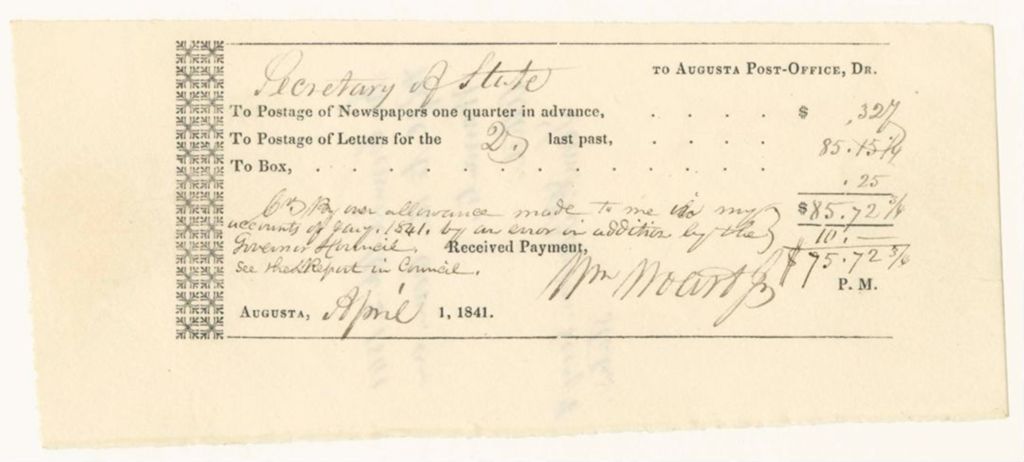 Secretary of State TO AUGUSTA POST-OFFICE, DR.
To Postage of Newspapers one quarter in advance, . . . . $ .327
To Postage of Letters for the 2. last past, . . . . 85.15
To Box, . . . . . . . . . . . . . . .25
By over allowance made to me in my $85.72
accounts of Jany. 1841. by an error in addition by the 10.—
Governor & Council. Received Payment, $75.72
See the Report in Council.
Wm Jr P. M.
AUGUSTA, April 1, 1841.